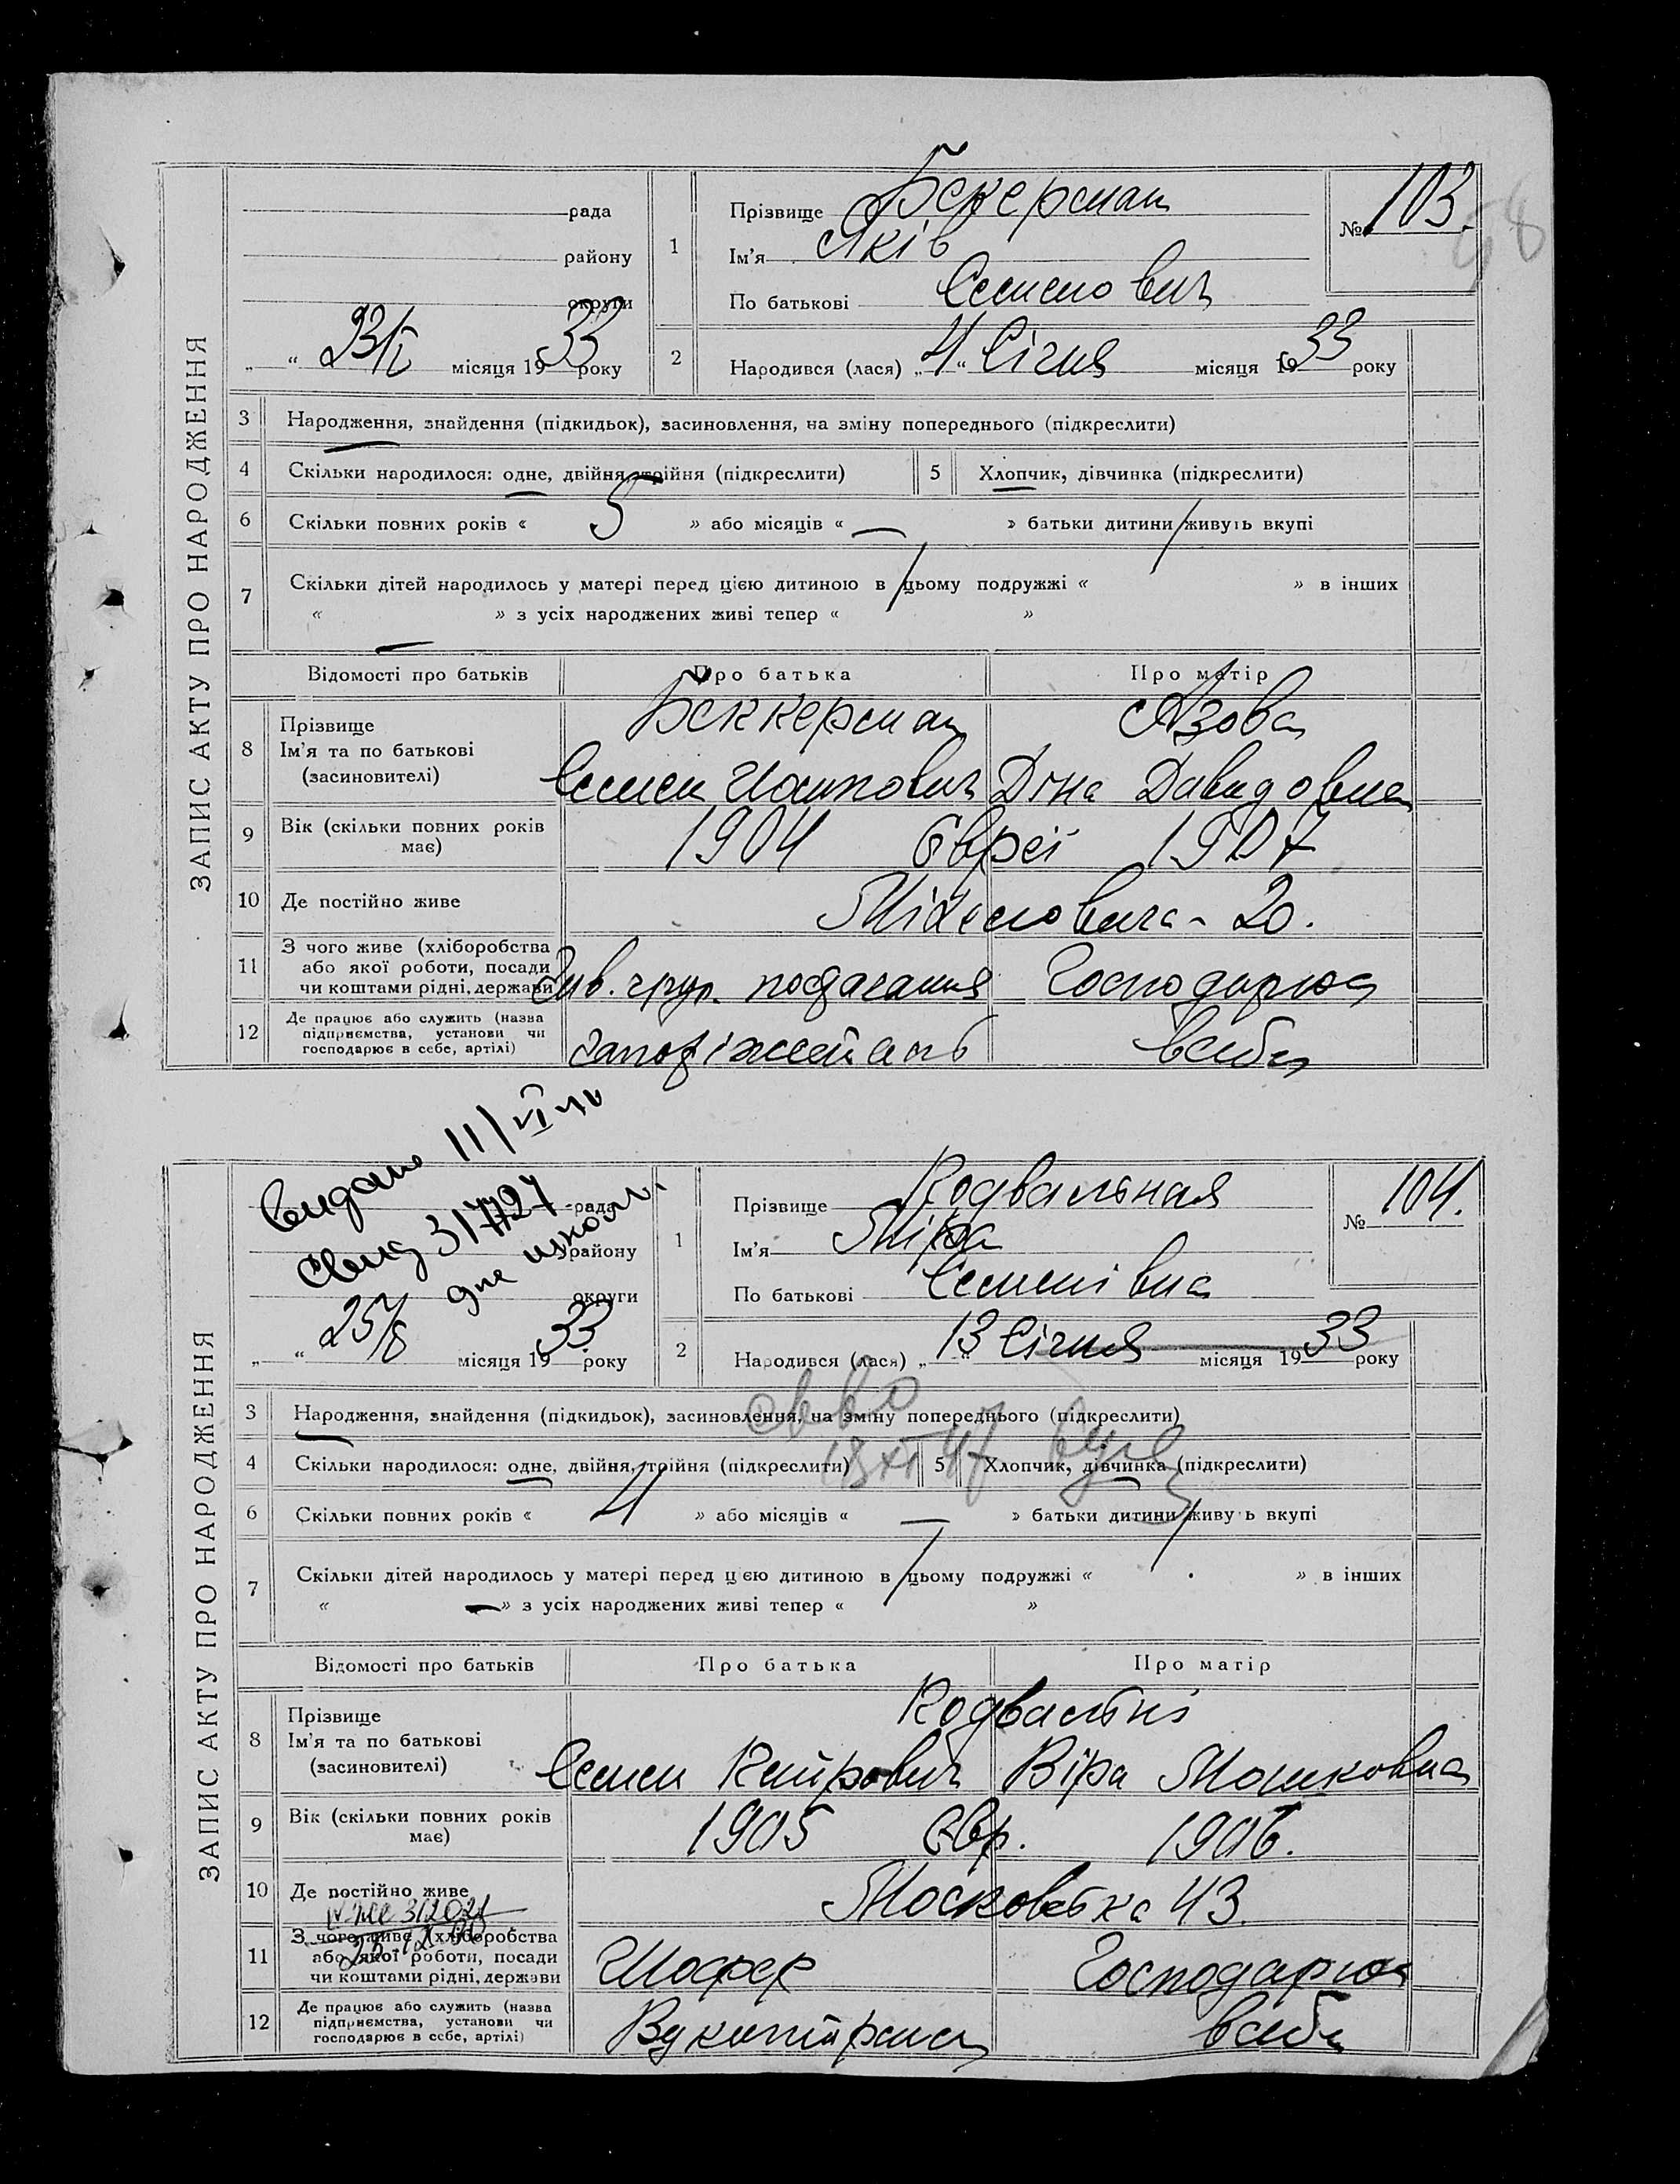 ЗАПИС АКТУ ПРО НАРОДЖЕННЯ
рада
району
округи
„ “ 23/I місяця 1933 року
1
Прізвище Бекерман
Ім'я Яків
По батькові Семенович
№ 103.
58
2
Народився (лася) „4“ Січня місяця 1933 року
3 Народження, знайдення (підкидьок), засиновлення, на зміну попереднього (підкреслити)
4 Скільки народилося: одне, двійня, трійня (підкреслити) 5 Хлопчик, дівчинка (підкреслити)
6 Скільки повних років « 5 » або місяців « — » батьки дитини живуть вкупі
7 Скільки дітей народилось у матері перед цією дитиною в цьому подружжі « » в інших
« » з усіх народжених живі тепер « »
Відомості про батьків Про батька Про матір
8 Прізвище
Ім'я та по батькові
(засиновителі)
Беккерман Азова
Семен Діна Давидовна
9 Вік (скільки повних років має)
1904 Євреї 1907
10 Де постійно живе
20.
11 З чого живе (хліборобства або якої роботи, посади чи коштами рідні, держави
постачання Господарює
12 Де працює або служить (назва підприємства, установи чи господарює в себе, артілі)
всебе
Видано 11/VI 40
Свид 317727
для школи
ЗАПИС АКТУ ПРО НАРОДЖЕННЯ
рада
району
округи
„ “ 25/I місяця 1933 року
1
Прізвище Подвальная
Ім'я Міра
По батькові Семенівна
№ 104.
2
Народився (лася) „13“ Січня місяця 1933 року
3 Народження, знайдення (підкидьок), засиновлення, на зміну попереднього (підкреслити)
4 Скільки народилося: одне, двійня, трійня (підкреслити) 5 Хлопчик, дівчинка (підкреслити)
6 Скільки повних років « 4 » або місяців « — » батьки дитини живуть вкупі
7 Скільки дітей народилось у матері перед цією дитиною в цьому подружжі « » в інших
« — » з усіх народжених живі тепер « »
Відомості про батьків Про батька Про матір
8 Прізвище
Ім'я та по батькові
(засиновителі)
Подвальні
Семен Віра Мошковна
9 Вік (скільки повних років має)
1905 Євр. 1906.
10 Де постійно живе
Московська 43.
11 З чого живе (хліборобства або якої роботи, посади чи коштами рідні, держави
Шофер Господарює
12 Де працює або служить (назва підприємства, установи чи господарює в себе, артілі)
всебе